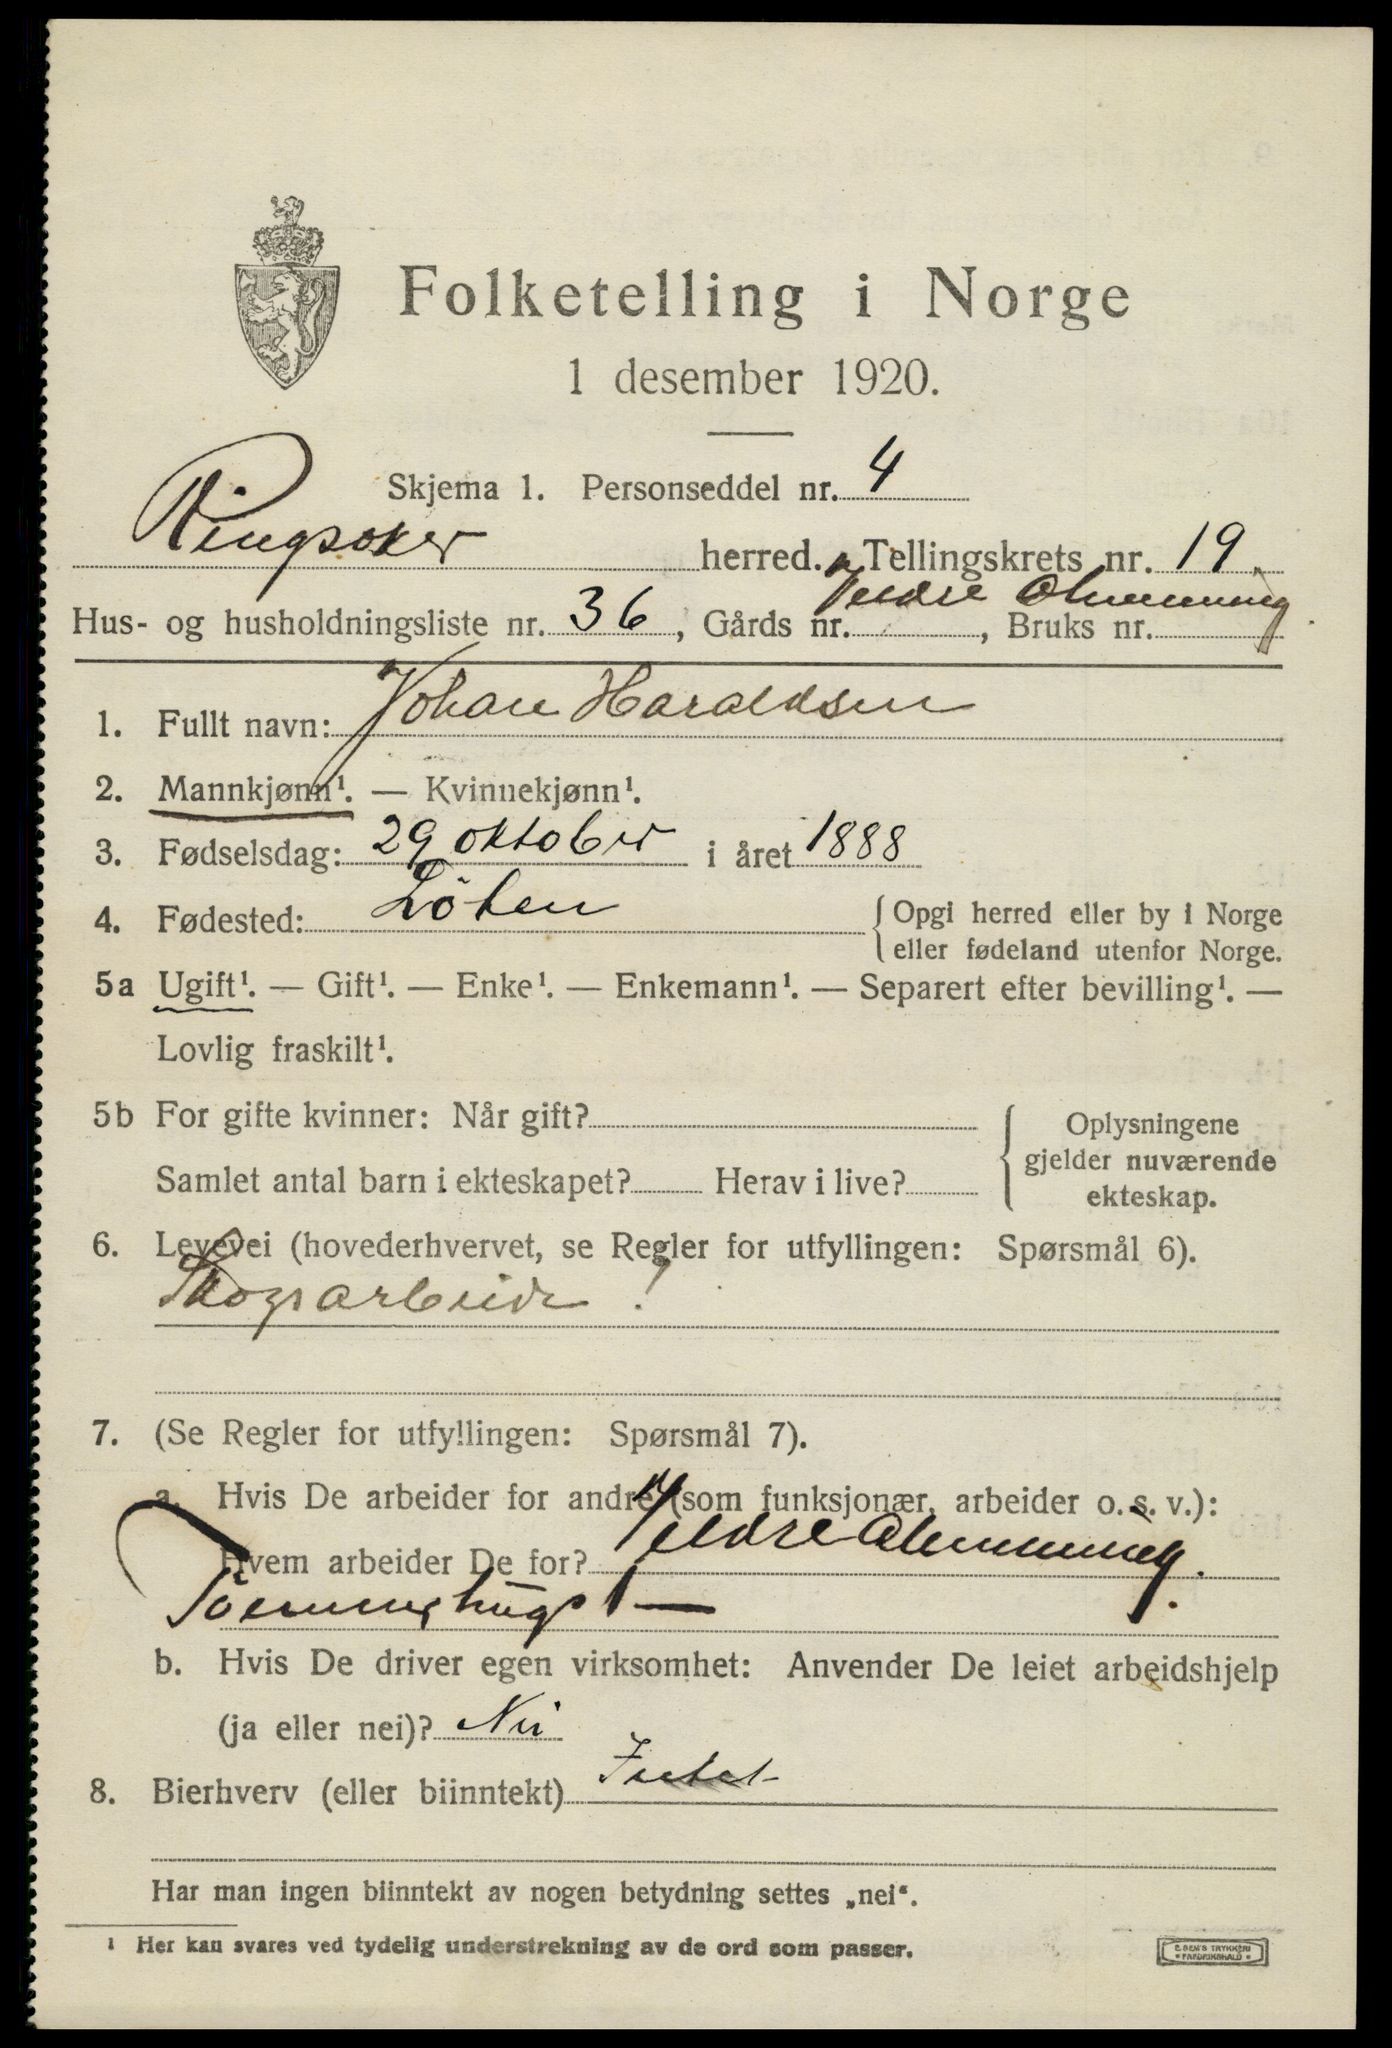 Folketelling i Norge
1 desember 1920.
Skjema 1. Personseddel nr. 4
Ringsaker herred. Tellingskrets nr. 19
Veldre Almenning
Hus- og husholdningsliste nr. 36, Gårds nr. , Bruks nr.
1. Fullt navn: Johan Haraldsen
2. Mannkjønn¹. — Kvinnekjønn¹.
3. Fødselsdag: 29 oktober i året 1888
4. Fødested: Löten {Opgi herred eller by i Norge
eller fødeland utenfor Norge.
5a Ugift¹. — Gift¹. — Enke¹. — Enkemann¹. — Separert efter bevilling¹. —
Lovlig fraskilt¹.
5b For gifte kvinner: Når gift? { Oplysningene
gjelder nuværende
Samlet antal barn i ekteskapet? Herav i live? ekteskap.
6. Levevei (hovederhvervet, se Regler for utfyllingen: Spørsmål 6).
Skogsarbeide !
7. (Se Regler for utfyllingen: Spørsmål 7).
a. Hvis De arbeider for andre (som funksjonær, arbeider o. s. v.):
Hvem arbeider De for? Veldre Almenning.
Tömmerhugst —
b. Hvis De driver egen virksomhet: Anvender De leiet arbeidshjelp
(ja eller nei)? Nei
8. Bierhverv (eller biinntekt) Intet
Har man ingen biinntekt av nogen betydning settes „nei“.
¹ Her kan svares ved tydelig understrekning av de ord som passer.
E. SEM'S TRYKKERI
* FREDRIKSHALD *